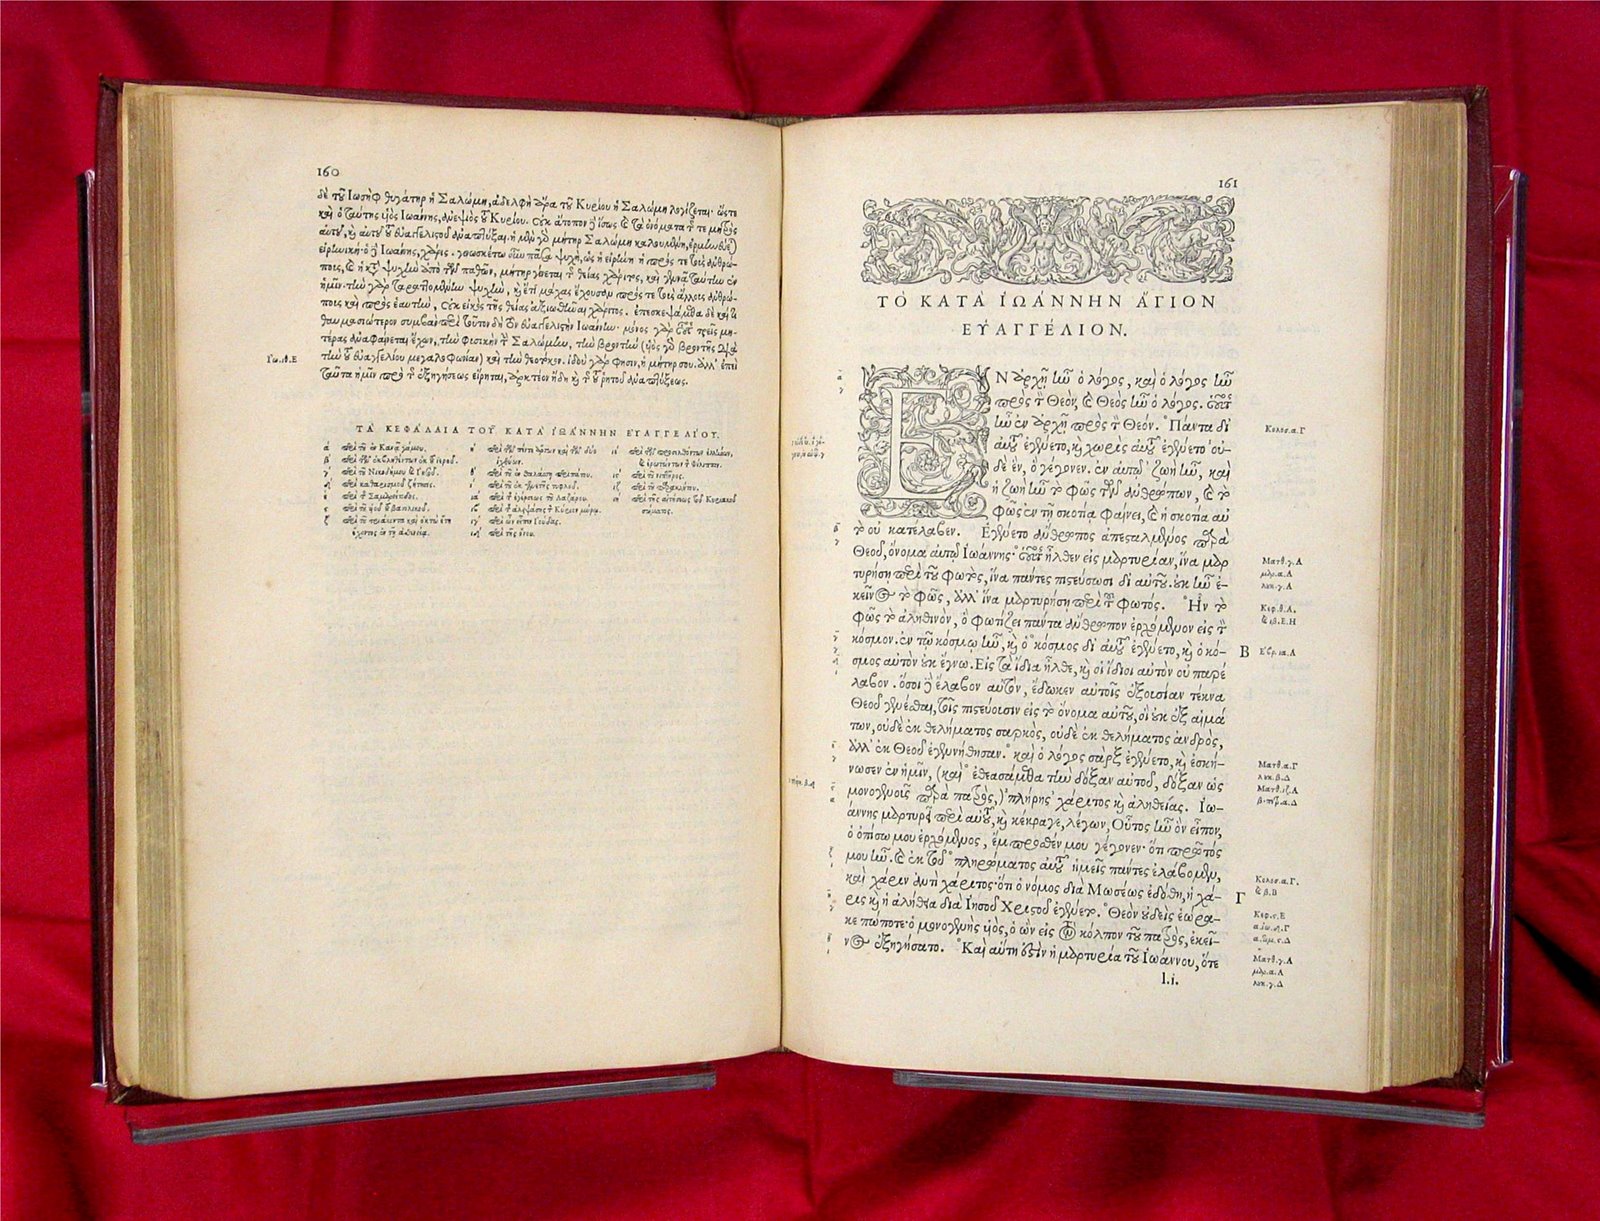 160
δὲ τοῦ Ἰωσὴφ θυγάτηρ ἡ Σαλώμη, ἀδελφὴ ἄρα τοῦ Κυρίου ἡ Σαλώμη λογίζεται· ὥστε
καὶ ὁ ταύτης υἱὸς Ἰωάννης, ἀνεψιὸς τοῦ Κυρίου. Οὐκ ἄτοπον δὲ ἴσως καὶ τὰ ὀνόματα τῆς τε μητρὸς
αὐτοῦ, καὶ αὐτοῦ τοῦ εὐαγγελιστοῦ ἀναπτύξαι. ἡ μὲν γὰρ μήτηρ Σαλώμη καλουμένη, ἑρμηνεύεται
εἰρηνική· ὁ δὲ Ἰωάννης, χάρις. γινωσκέτω οὖν πᾶσα ψυχὴ, ὡς ἡ εἰρήνη ἡ πρός τε τοὺς ἀνθρώ-
ποις καὶ πρὸς ἑαυτὴν, οὐκ εἰκὸς τῆς θείας ἀξιωθῆναι χάριτος. ἐπεσκεψάμεθα δὲ καί τι
θαυμασιώτερον συμβὰν περὶ τοῦτον δὴ τὸν εὐαγγελιστὴν Ἰωάννην· μόνος γὰρ οὗτος τρεῖς μη-
τέρας ἀναφαίνεται ἔχων, τὴν φυσικὴν τὴν Σαλώμην, τὴν βροντὴν (υἱὸς γὰρ βροντῆς διὰ
τὴν τοῦ εὐαγγελίου μεγαλοφωνίαν) καὶ τὴν θεοτόκον. ἰδοὺ γάρ φησιν, ἡ μήτηρ σου. ἀλλ' ἐπεὶ
ταῦτα ἡμῖν πρὸ τῆς ἐξηγήσεως εἴρηται, ἀρκτέον ἤδη καὶ τῆς τοῦ ῥητοῦ ἀναπτύξεως.
Ἰω.ιθ.Ε
ΤΑ ΚΕΦΑΛΑΙΑ ΤΟΥ ΚΑΤΑ ΙΩΑΝΝΗΝ ΕΥΑΓΓΕΛΙΟΥ.
α περὶ τοῦ ἐν Κανᾷ γάμου.
β περὶ τῶν ἐκβληθέντων ἐκ τοῦ ἱεροῦ.
γ περὶ τοῦ Νικοδήμου
δ περὶ καθαρισμοῦ ζήτησις.
ε περὶ τῆς Σαμαρείτιδος.
ς περὶ τοῦ υἱοῦ τοῦ βασιλικοῦ.
ζ περὶ τοῦ τριάκοντα καὶ ὀκτὼ ἔτη
ἔχοντος ἐν τῇ ἀσθενείᾳ.
η περὶ τῶν πέντε ἄρτων καὶ τῶν δύο
ἰχθύων.
θ περὶ τοῦ ἐν θαλάσσῃ περιπάτου.
ι περὶ τοῦ ἐκ γενετῆς τυφλοῦ.
ια περὶ τῆς ἐγέρσεως τοῦ Λαζάρου.
ιβ περὶ τῆς ἀλειψάσης τὸν Κύριον μύρῳ.
ιγ περὶ ὧν εἶπεν Ἰούδας.
ιδ περὶ τῆς ὄνου.
ιε περὶ τῶν προσελθόντων ἑλλήνων,
καὶ ἐρωτώντων τὸν Φίλιππον.
ις περὶ τοῦ νιπτῆρος.
ιζ περὶ τοῦ παρακλήτου.
ιη περὶ τῆς αἰτήσεως τοῦ Κυριακοῦ
σώματος.
161
ΤΟ ΚΑΤΑ ΙΩΑΝΝΗΝ ἍΓΙΟΝ
ΕΥΑΓΓΕΛΙΟΝ.
ΕΝ ἀρχῇ ἦν ὁ λόγος, καὶ ὁ λόγος ἦν
πρὸς τὸν Θεὸν, καὶ Θεὸς ἦν ὁ λόγος. οὗτος
ἦν ἐν ἀρχῇ πρὸς τὸν Θεόν. Πάντα δι'
αὐτοῦ ἐγένετο, καὶ χωρὶς αὐτοῦ ἐγένετο οὐ-
δὲ ἓν, ὃ γέγονεν. ἐν αὐτῷ ζωὴ ἦν, καὶ
ἡ ζωὴ ἦν τὸ φῶς τῶν ἀνθρώπων, καὶ τὸ
φῶς ἐν τῇ σκοτίᾳ φαίνει, καὶ ἡ σκοτία αὐ
τὸ οὐ κατέλαβεν. Ἐγένετο ἄνθρωπος ἀπεσταλμένος παρὰ
Θεοῦ, ὄνομα αὐτῷ Ἰωάννης· οὗτος ἦλθεν εἰς μαρτυρίαν, ἵνα μαρ
τυρήσῃ περὶ τοῦ φωτὸς, ἵνα πάντες πιστεύσωσι δι' αὐτοῦ. οὐκ ἦν ἐ-
κεῖνος τὸ φῶς, ἀλλ' ἵνα μαρτυρήσῃ περὶ τοῦ φωτός. Ἦν τὸ
φῶς τὸ ἀληθινὸν, ὃ φωτίζει πάντα ἄνθρωπον ἐρχόμενον εἰς τὸν
κόσμον. ἐν τῷ κόσμῳ ἦν, καὶ ὁ κόσμος δι' αὐτοῦ ἐγένετο, καὶ ὁ κό-
σμος αὐτὸν οὐκ ἔγνω. Εἰς τὰ ἴδια ἦλθε, καὶ οἱ ἴδιοι αὐτὸν οὐ παρέ
λαβον. ὅσοι δὲ ἔλαβον αὐτὸν, ἔδωκεν αὐτοῖς ἐξουσίαν τέκνα
Θεοῦ γενέσθαι, τοῖς πιστεύουσιν εἰς τὸ ὄνομα αὐτοῦ, οἳ οὐκ ἐξ αἱμά
των, οὐδὲ ἐκ θελήματος σαρκὸς, οὐδὲ ἐκ θελήματος ἀνδρὸς,
ἀλλ' ἐκ Θεοῦ ἐγεννήθησαν. καὶ ὁ λόγος σὰρξ ἐγένετο, καὶ ἐσκή-
νωσεν ἐν ἡμῖν, (καὶ ἐθεασάμεθα τὴν δόξαν αὐτοῦ, δόξαν ὡς
μονογενοῦς παρὰ πατρὸς,) πλήρης χάριτος καὶ ἀληθείας. Ἰω-
άννης μαρτυρεῖ περὶ αὐτοῦ, καὶ κέκραγε, λέγων, Οὗτος ἦν ὃν εἶπον,
ὁ ὀπίσω μου ἐρχόμενος, ἔμπροσθέν μου γέγονεν· ὅτι πρῶτός
μου ἦν. καὶ ἐκ τοῦ πληρώματος αὐτοῦ ἡμεῖς πάντες ἐλάβομεν,
καὶ χάριν ἀντὶ χάριτος· ὅτι ὁ νόμος διὰ Μωσέως ἐδόθη, ἡ χά-
ρις καὶ ἡ ἀλήθεια διὰ Ἰησοῦ Χριστοῦ ἐγένετο. Θεὸν οὐδεὶς ἑώρα-
κε πώποτε· ὁ μονογενὴς υἱὸς, ὁ ὢν εἰς τὸν κόλπον τοῦ πατρὸς, ἐκεῖ-
νος ἐξηγήσατο. Καὶ αὕτη ἐστὶν ἡ μαρτυρία τοῦ Ἰωάννου, ὅτε
l.i.
Κολοσ.α.Γ
Ματθ.γ.Α
μαρ.α.Α
λυκ.γ.Α
Κεφ.θ.Α.
καὶ ιβ.Ε.Η
Β
Ἑβρ.ια.Α
Ματθ.α.Γ
λυκ.β.Δ
Ματθ.ιζ.Α
β.πέτ.α.Δ
Κολοσ.α.Γ.
καὶ β.Β
Γ
Κεφ.ς.Ε
α.ἰω.δ.Γ
α.τιμ.ς.Δ
Ματθ.γ.Α
μαρ.α.Α
λυκ.γ.Δ